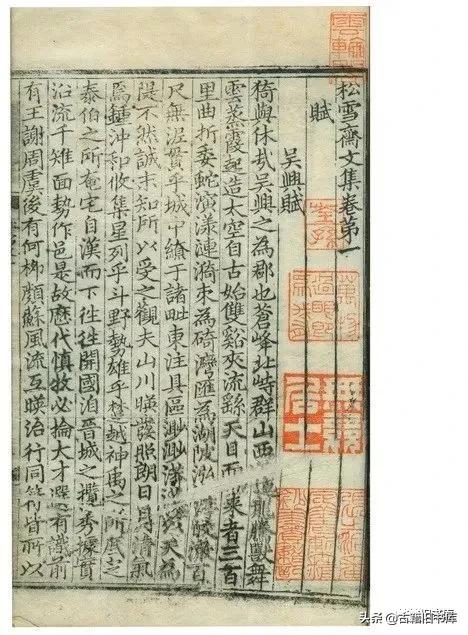 松雪齋文集卷第一
賦
吴興賦
猗與休㢤吴興之為郡也蒼峰北峙群山西迤龍騰獸舞
雲蒸霞起造太空自古始雙谿夾流繇天目而來者三百
里曲折委蛇演漾漣漪束為碕灣匯為湖陂泓 百
尺無泥貫乎城中繚于諸毗東注具區渺渺漭漭以天為
隄不然誠未知所以受之觀夫山川暎發照朗日月清氣
焉鍾沖和攸集星列乎斗野勢雄乎楚越神禹之所底定
泰伯之所奄宅自漢而下往往開國洎晉城之攬秀據實
沿流千雉面勢作邑是故歷代慎牧必掄大才選有識前
有王謝周虞後有何柳顏蘇風流互暎治行同符皆所以
头条@古籍旧书库